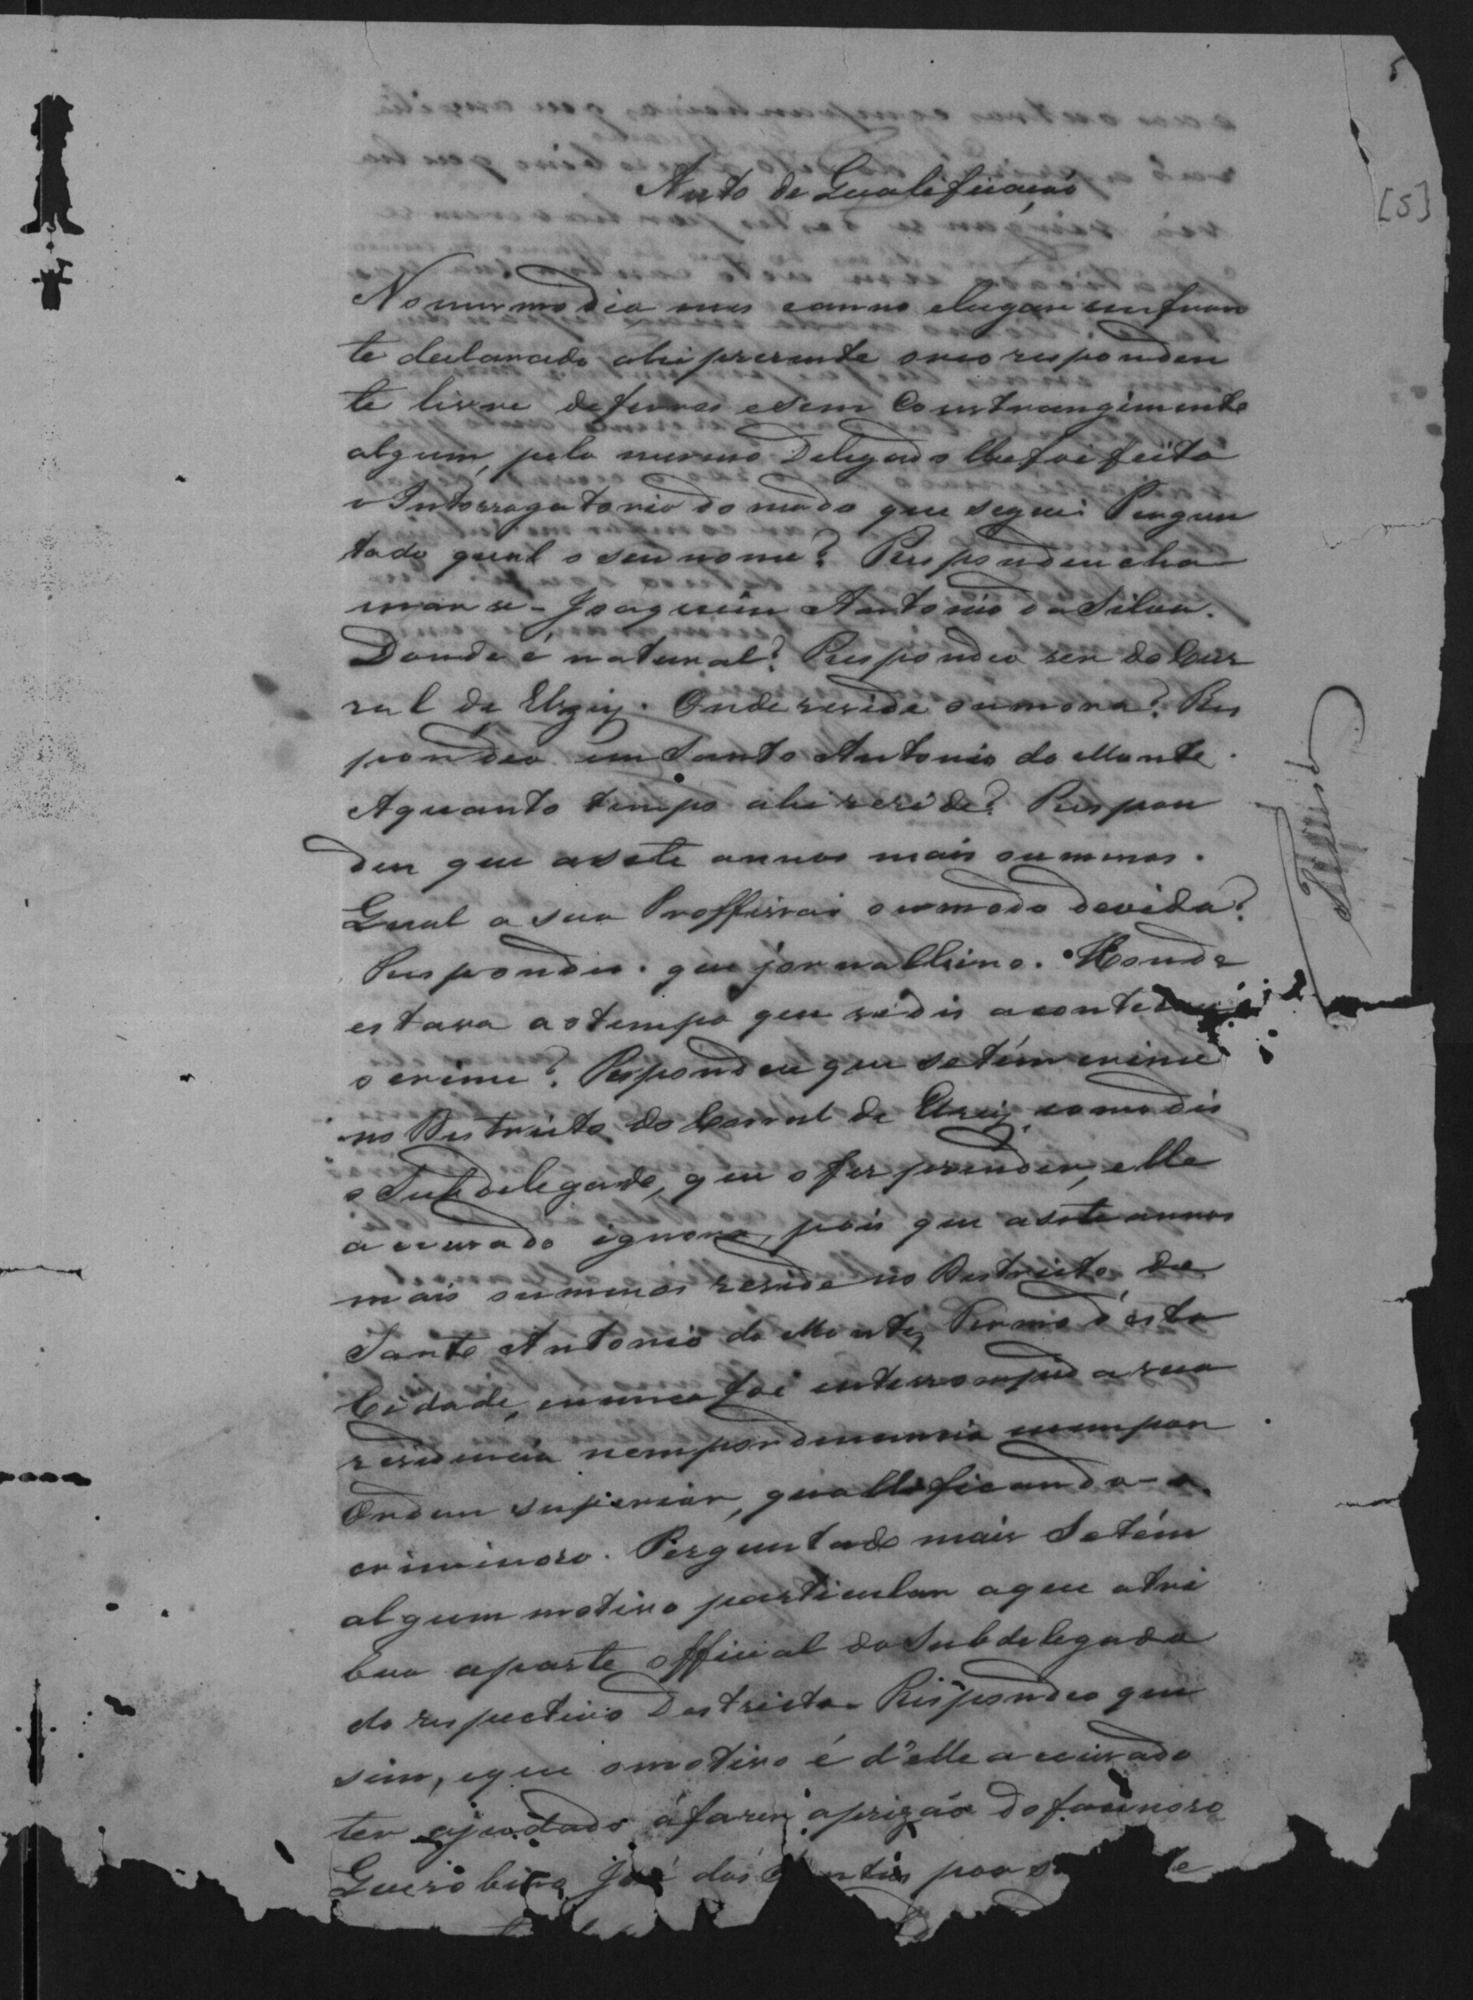 5
[5]
Auto de Qualificação
No mesmo dia mes e anno e lugar em fren
te declarado ahi presente o reo responden
te livre de ferros e sem Constrangimento
algum, pelo mesmo Delegado lhe foi feito
o Intorrogatorio do modo que segue: Pergun
tado qual o seu nome? Respondeu cha
mar se - Joaquim Antonio da Silva.
Donde é natural? Respondeo ser do Cur
ral de Elzey. Onde reside ou mora? Res
pondeo em Santo Antonio do Monte.
Aquanto tempo ahi reside? Respon
deu que a sete annos mais ou menos.
Qual a sua Proffissaõ ou modo de vida?
Respondeu. que jornalheiro. Honde
estava ao tempo que se dis aconteceu
o crime? Respondeu que se têm crime
no Destricto do Curral de Elzey, como dis
o Subdelegado, que o fes prender, elle
accusado ignora, pois que a sete annos
mais ou menos reside no Destricto de
Santo Antonio do Monte, Termo d'esta
Cidade, e nunca foi interrompido a sua
residencia nem por denuncia nem por
Ordem superior, quallificando-o
criminoso. Perguntado mais Se têm
algum motivo particular a que atri
bua a parte official do Subdelegado
do respectivo Destricto. Respondeo que
sim, e que o motivo é d'elle accusado
ter ajudado á fazer a prizão do facinoroso
Queirobino José dos por